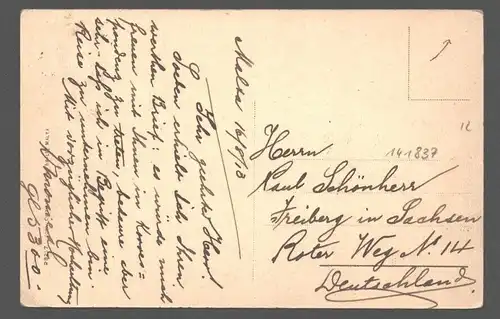 Malta 16/8/13
Sehr geehrter Herr!
Soeben erhielt ich Ihren
werthen Brief. es würde mich
freuen mit Ihnen in Korres-
pondenz zu treten, bedaure aber
sehr daß ich in Begriff eine
Reise zu unternehmen bin.
Mit vorzüglicher Hochachtung
Gl 5300
Herrn
Paul Schönherr
Freiberg in Sachsen
Roter Weg No. 14
Deutschland
141837
12